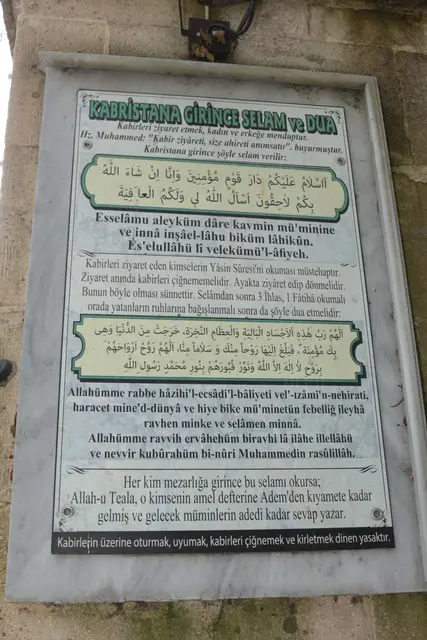 KABRİSTANA GİRİNCE SELAM ve DUA
Kabirleri ziyaret etmek, kadın ve erkeğe menduptur.
Hz. Muhammed: "Kabir ziyâreti, size ahireti anımsatır". buyurmuştur.
Kabristana girince şöyle selam verilir:
اَلسَّلَامُ عَلَيْكُمْ دَارَ قَوْمٍ مُؤْمِنِينَ وَإِنَّا إِنْ شَاءَ اللّٰهُ
بِكُمْ لَاحِقُونَ أَسْأَلُ اللّٰهَ لِي وَلَكُمُ الْعَافِيَةَ
Esselâmu aleyküm dâre kavmin mü'minine
ve innâ inşâel-lâhu biküm lâhikûn.
Es'elullâhü lî velekümü'l-âfiyeh.
Kabirleri ziyaret eden kimselerin Yâsin Sûresi'ni okuması müstehaptır.
Ziyaret anında kabirler çiğnememelidir. Ayakta ziyaret edip dönmelidir.
Bunun böyle olması sünnettir. Selâmdan sonra 3 İhlas, 1 Fâtihâ okumalı
orada yatanların ruhlarına bağışlanmalı sonra da şöyle dua etmelidir:
اَللّٰهُمَّ رَبَّ هٰذِهِ الْأَجْسَادِ الْبَالِيَةِ وَالْعِظَامِ النَّخِرَةِ، خَرَجَتْ مِنَ الدُّنْيَا وَهِيَ
بِكَ مُؤْمِنَةٌ، فَبَلِّغْ إِلَيْهَا رَوْحاً مِنْكَ وَ سَلَاماً مِنَّا، اَللّٰهُمَّ رَوِّحْ أَرْوَاحَهُمْ
بِرَوْحِ لَا إِلٰهَ إِلَّا اللّٰهُ وَنَوِّرْ قُبُورَهُمْ بِنُورِ مُحَمَّدٍ رَسُولِ اللّٰهِ
Allahümme rabbe hâzihi'l-ecsâdi'l-bâliyeti vel'-ızâmi'n-nehirati,
haracet mine'd-dünyâ ve hiye bike mü'minetün febelliğ ileyhâ
ravhen minke ve selâmen minnâ.
Allahümme ravvih ervâhehüm biravhi lâ ilâhe illellâhü
ve nevvir kubûrahüm bi-nûri Muhammedin rasûlillâh.
Her kim mezarlığa girince bu selamı okursa;
Allah-u Teala, o kimsenin amel defterine Adem'den kıyamete kadar
gelmiş ve gelecek müminlerin adedi kadar sevap yazar.
Kabirlerin üzerine oturmak, uyumak, kabirleri çiğnemek ve kirletmek dinen yasaktır.